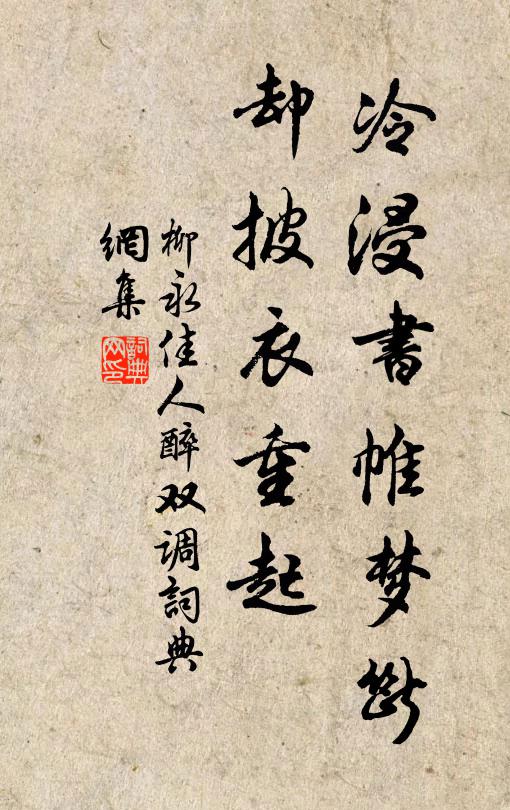 冷浸書帷梦斷
却披衣重起
柳永佳人醉双调詞典
網集
詞典网印